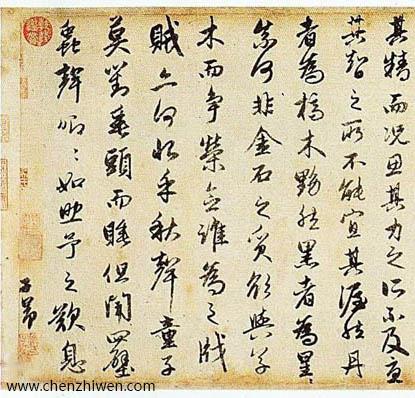 其精而況思其力之所不及憂
其智之所不能宜其渥然丹
者為槁木黟然黑者為星〻
奈何非金石之質欲與草
木而爭榮念誰為之戕
賊亦何恨乎秋聲童子
莫對垂頭而睡但聞四壁
蟲聲唧〻如助予之歎息
子昂
www.chenzhiwen.com